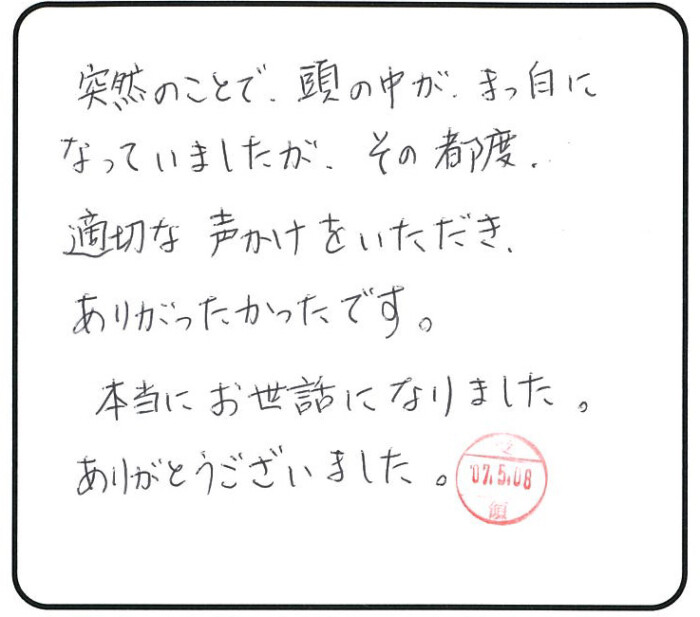 突然のことで、頭の中が、まっ白に
なっていましたが、その都度、
適切な声かけをいただき、
ありがったかったです。
本当にお世話になりました。
ありがとうございました。
受
'07.5.08
領